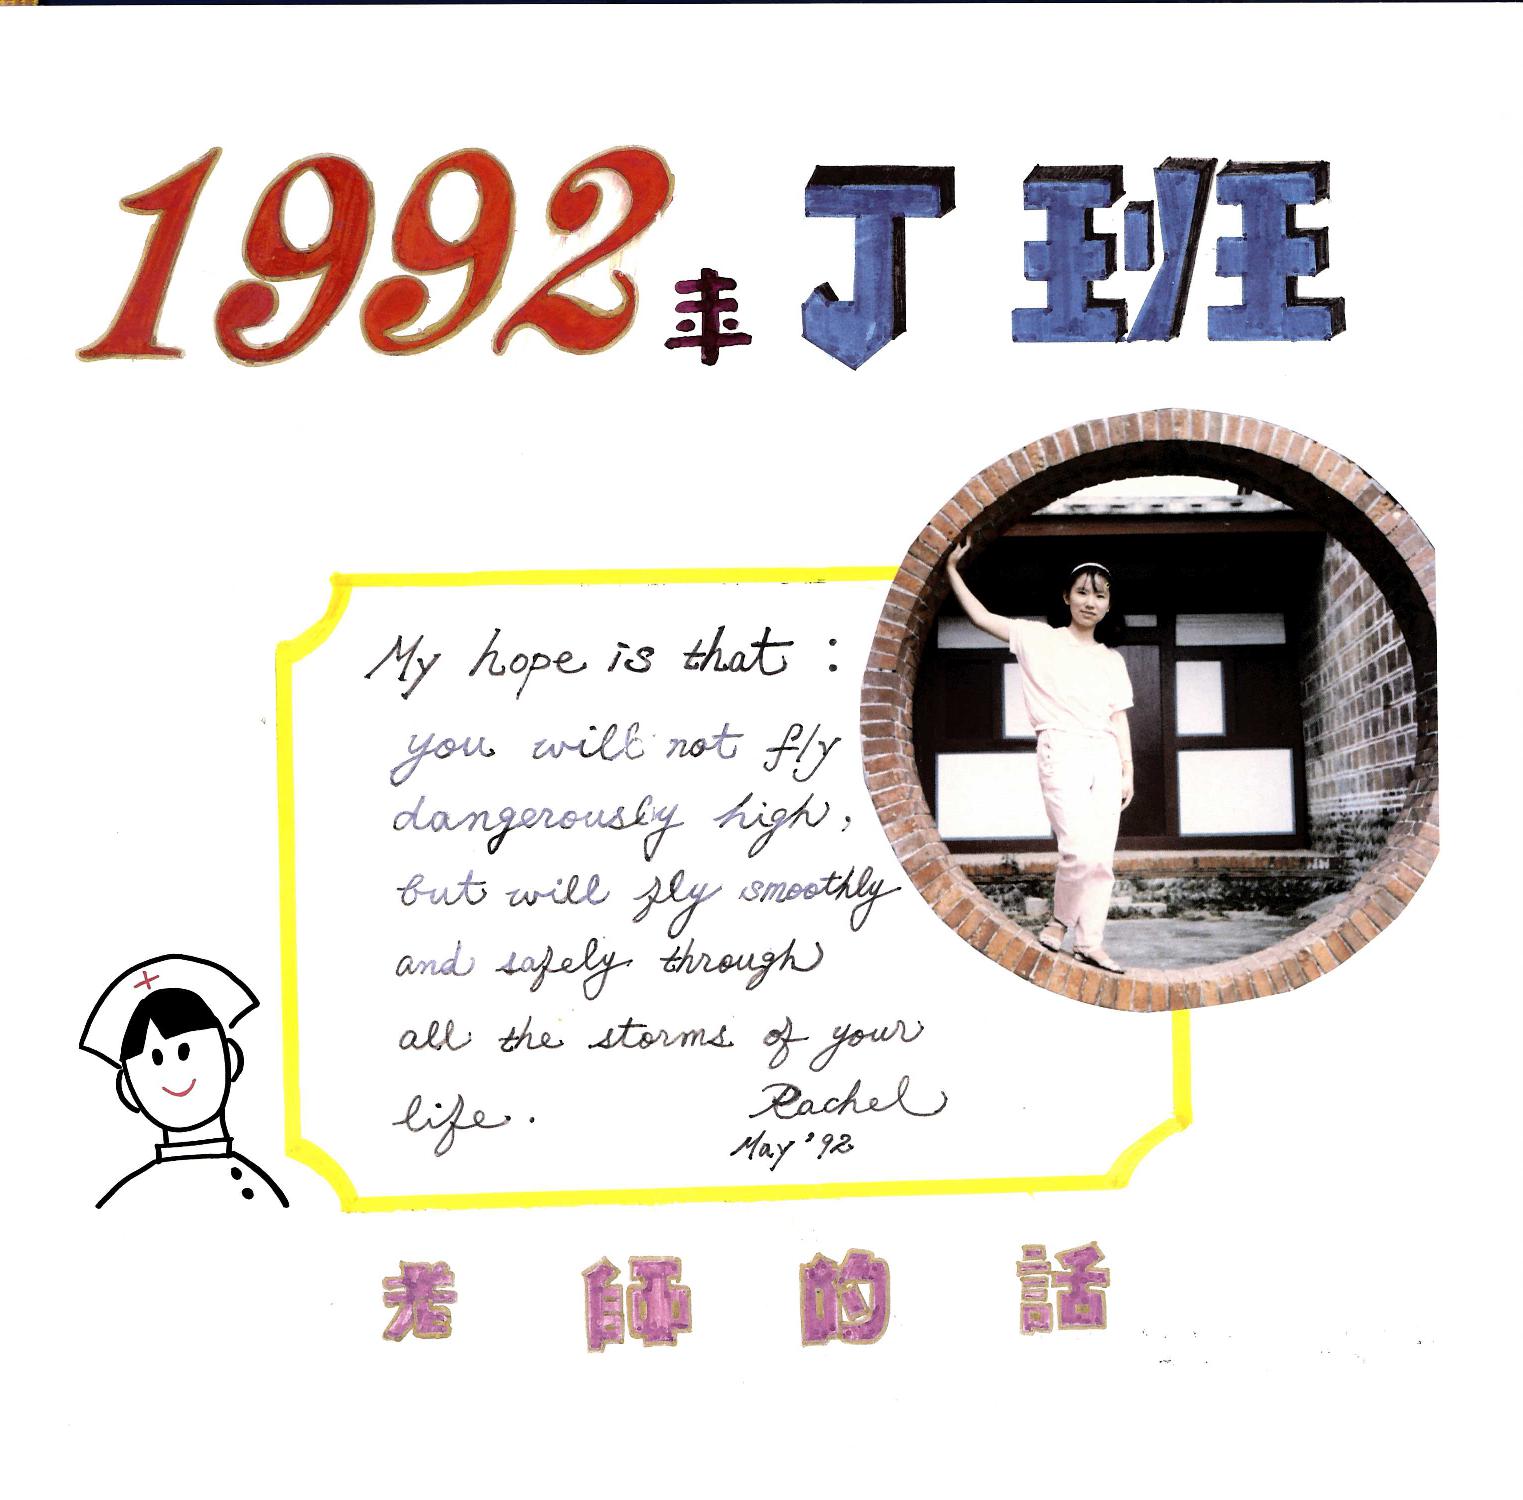 1992年 J 班
My hope is that :
you will not fly
dangerously high,
but will fly smoothly
and safely through
all the storms of your
life.
Rachel
May '92
老師的話